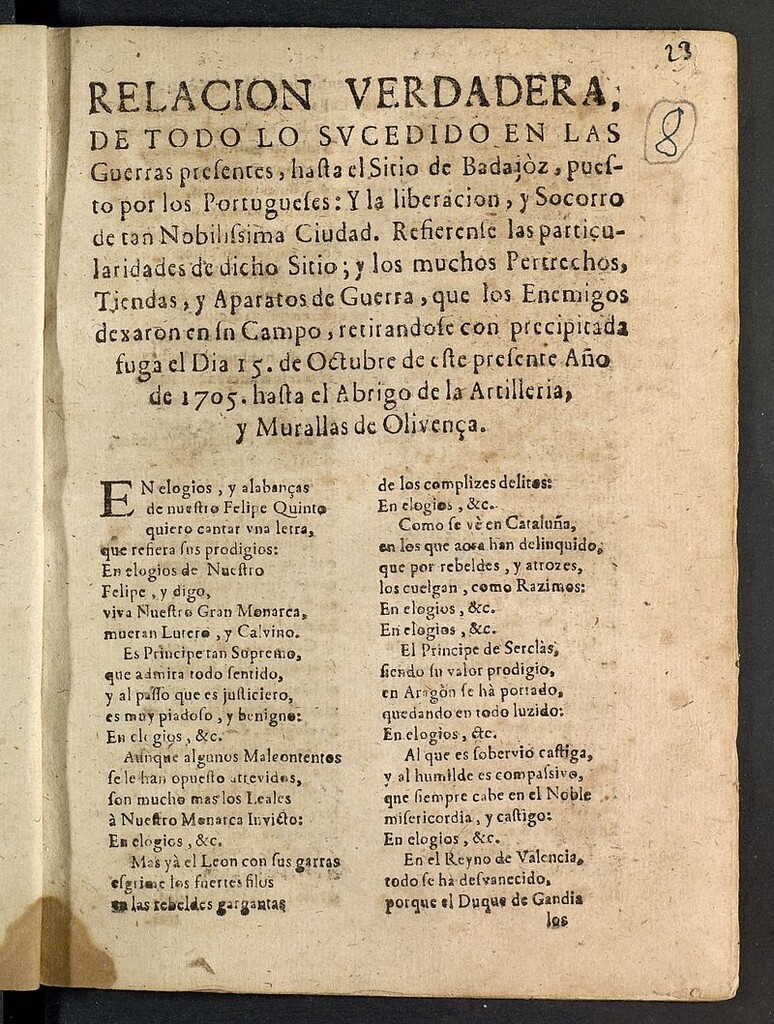 23
8
RELACION VERDADERA,
DE TODO LO SVCEDIDO EN LAS
Guerras preſentes, haſta el Sitio de Badajòz, pueſ-
to por los Portugueſes: Y la liberacion, y Socorro
de tan Nobiliſsima Ciudad. Refierenſe las particu-
laridades de dicho Sitio; y los muchos Pertrechos,
Tiendas, y Aparatos de Guerra, que los Enemigos
dexaron en ſn Campo, retirandoſe con precipitada
fuga el Dia 15. de Octubre de eſte preſente Año
de 1705. haſta el Abrigo de la Artilleria,
y Murallas de Olivença.
EN elogios, y alabanças
de nueſtro Felipe Quinto
quiero cantar vna letra,
que refiera ſus prodigios:
En elogios de Nueſtro
Felipe, y digo,
viva Nueſtro Gran Monarca,
mueran Lutero, y Calvino.
Es Principe tan Supremo,
que admira todo ſentido,
y al paſſo que es juſticiero,
es muy piadoſo, y benigno:
En elogios, &c.
Aunque algunos Malcontentos
ſe le han opueſto atrevidos,
ſon mucho mas los Leales
à Nueſtro Monarca Invicto:
En elogios, &c.
Mas yà el Leon con ſus garras
eſgrime los fuertes filos
en las rebeldes gargantas
de los complizes delitos:
En elogios, &c.
Como ſe vè en Cataluña,
en los que aora han delinquido,
que por rebeldes, y atrozes,
los cuelgan, como Razimos:
En elogios, &c.
En elogios, &c.
El Principe de Serclàs,
ſiendo ſu valor prodigio,
en Aragòn ſe hà portado,
quedando en todo luzido:
En elogios, &c.
Al que es ſobervio caſtiga,
y al humilde es compaſsivo,
que ſiempre cabe en el Noble
miſericordia, y caſtigo:
En elogios, &c.
En el Reyno de Valencia,
todo ſe hà deſvanecido,
porque el Duque de Gandia
los